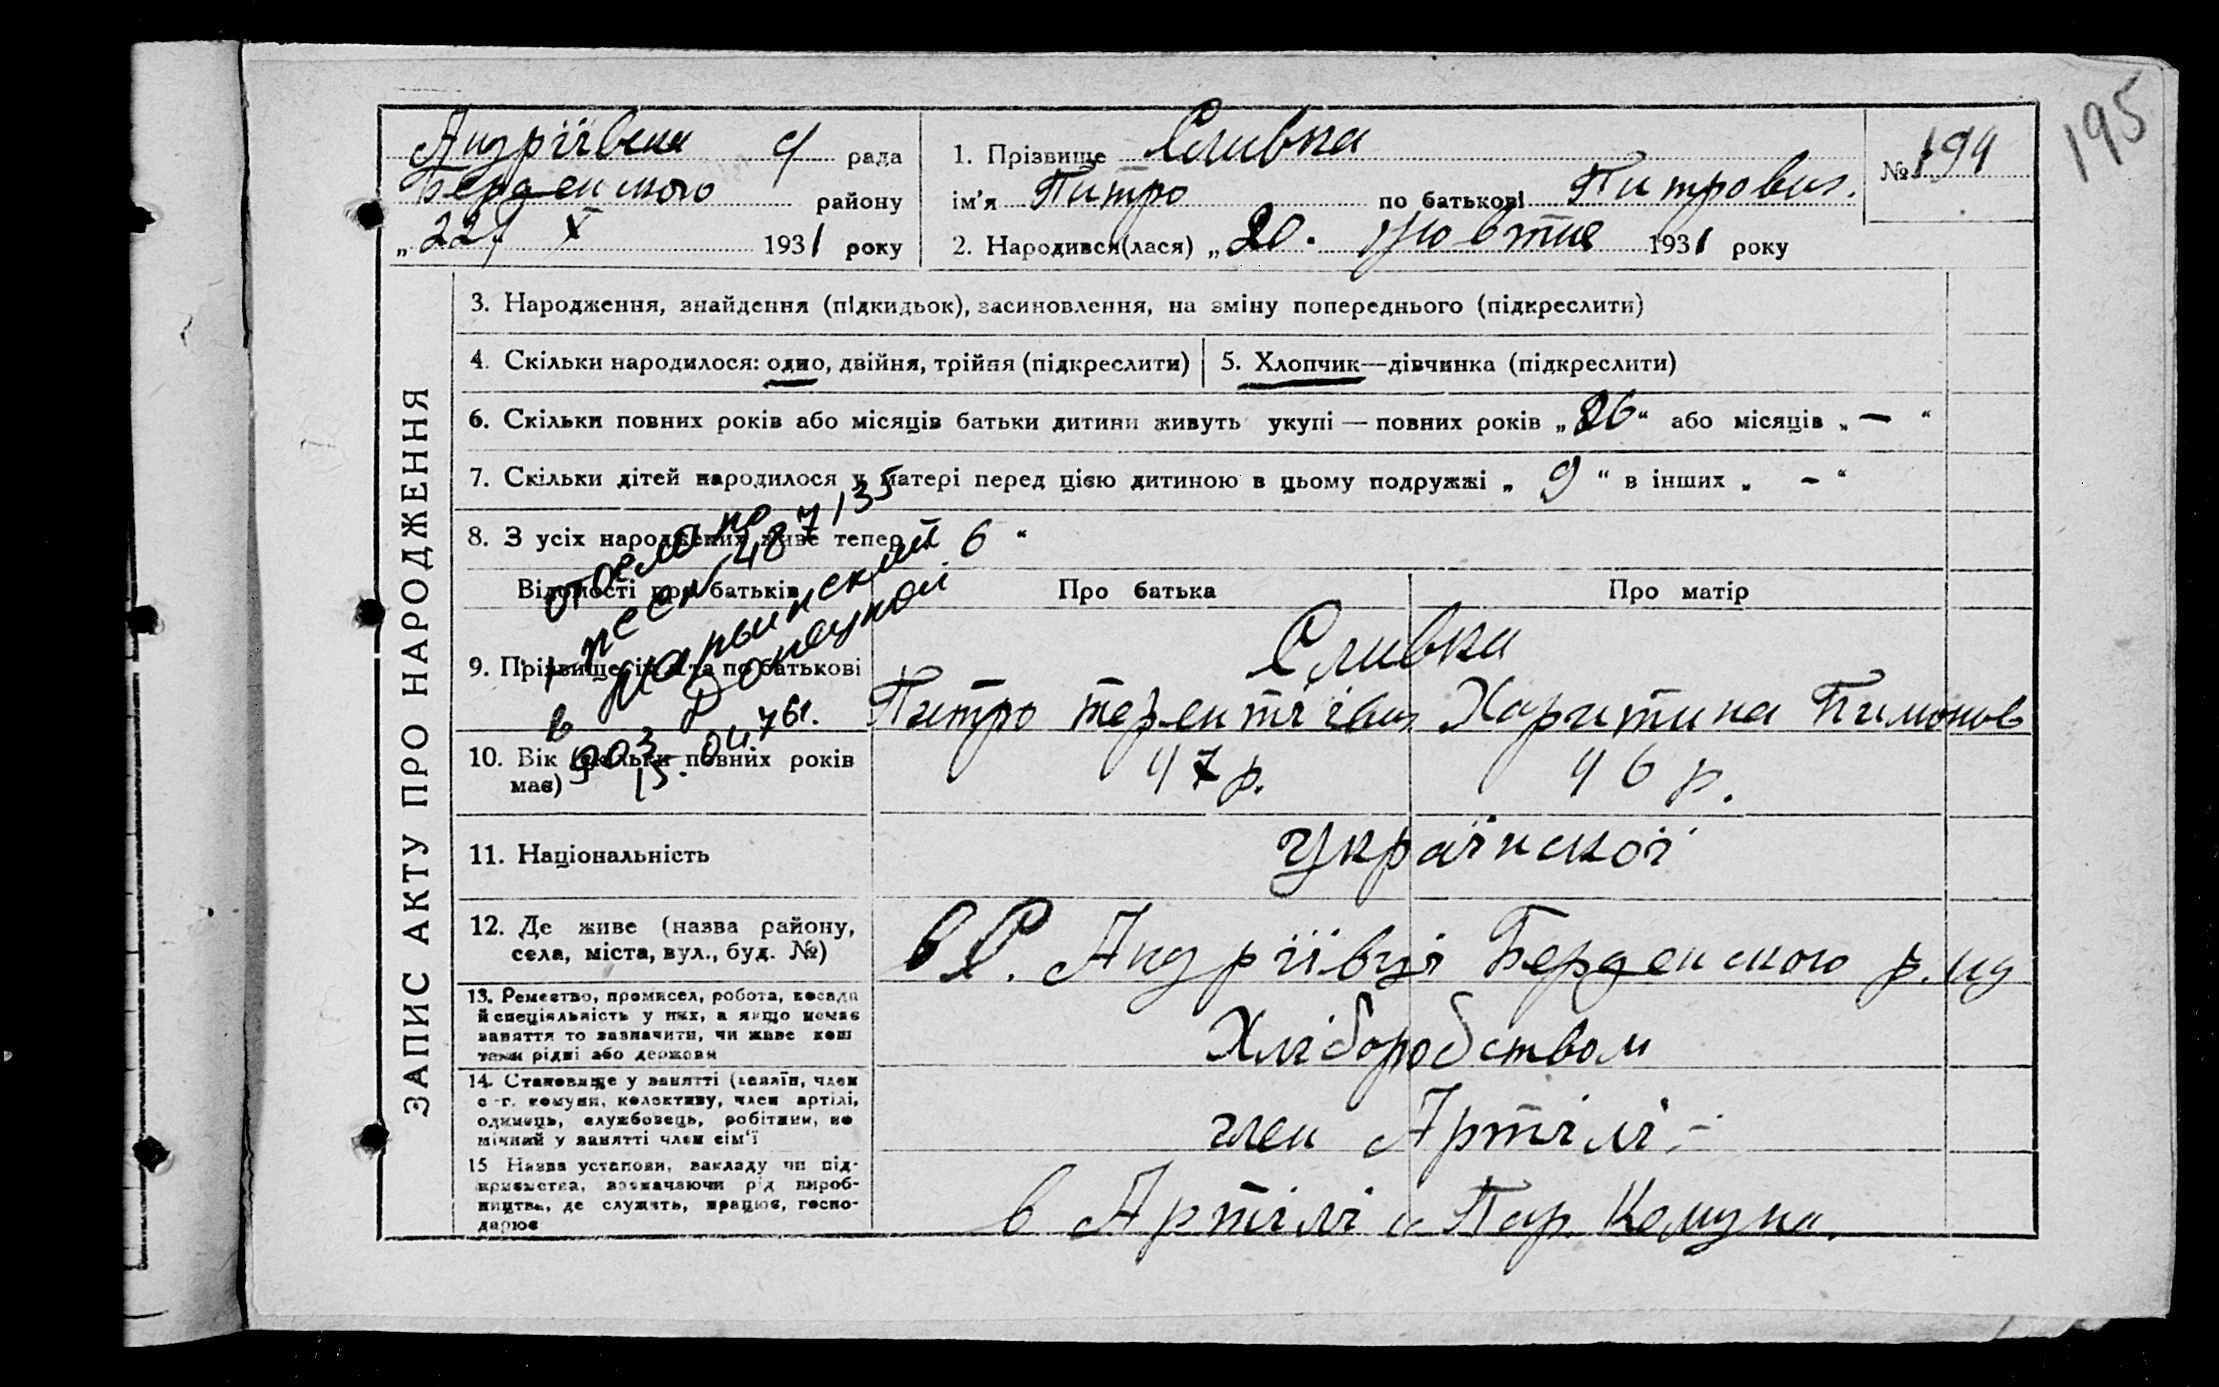 195
Андріївськ с/ рада
Берденського району
„22/ X 1931 року
1. Прізвище Сливка
ім'я Питро по батькові Питрович.
№ 194
2. Народився(лася) „20. жовтня 1931 року
ЗАПИС АКТУ ПРО НАРОДЖЕННЯ
3. Народження, знайдення (підкидьок), засиновлення, на зміну попереднього (підкреслити)
4. Скільки народилося: одно, двійня, трійня (підкреслити)
5. Хлопчик—дівчинка (підкреслити)
6. Скільки повних років або місяців батьки дитини живуть укупі — повних років „26“ або місяців „—“
7. Скільки дітей народилося у матері перед цією дитиною в цьому подружжі „9“ в інших „-“
8. З усіх народжених живе тепер „6“
Відомості про батьків
Про батька
Про матір
9. Прізвище, ім'я та по батькові
Сливка
Питро Терентіївич Харитина Пимонов
10. Вік (скільки повних років має)
47 р.
46 р.
11. Національність
Української
12. Де живе (назва району,
села, міста, вул., буд. №)
в С. Андріївці Берденського р.
13. Ремество, промисел, робота, посада
й спеціяльність у них, а якщо немає
заняття то зазначити, чи живе кош
тами рідні або держави
Хліборобством
14. Становище у занятті (хазяїн, член
с.-г. комуни, колективу, член артілі,
одинець, службовець, робітник, по
мічний у занятті член сім'ї
член Артілі -
15 Назва установи, закладу чи під-
приємства, зазначаючи рід вироб-
ництва, де служить, працює, госпо-
дарює
в Артілі „Пар. Комуна.
отослано
487135
в Марьинский
Донецкой
15. 04 76г.